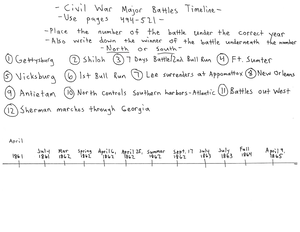 - Civil War Major Battles Timeline -
- Use pages 494-521 -
- Place the number of the battle under the correct year
- Also write down the winner of the battle underneath the number
- North or South -
① Gettysburg ② Shiloh ③ 7 Days Battle/2nd Bull Run ④ Ft. Sumter
⑤ Vicksburg ⑥ 1st Bull Run ⑦ Lee surrenders at Appomattox ⑧ New Orleans
⑨ Antietam ⑩ North Controls Southern harbors-Atlantic ⑪ Battles out West
⑫ Sherman marches through Georgia
April 1861 July 1861 Mar 1862 Spring 1862 April 6, 1862 April 25, 1862 Summer 1862 Sept. 17 1862 July 1863 July 1863 Fall 1864 April 9, 1865